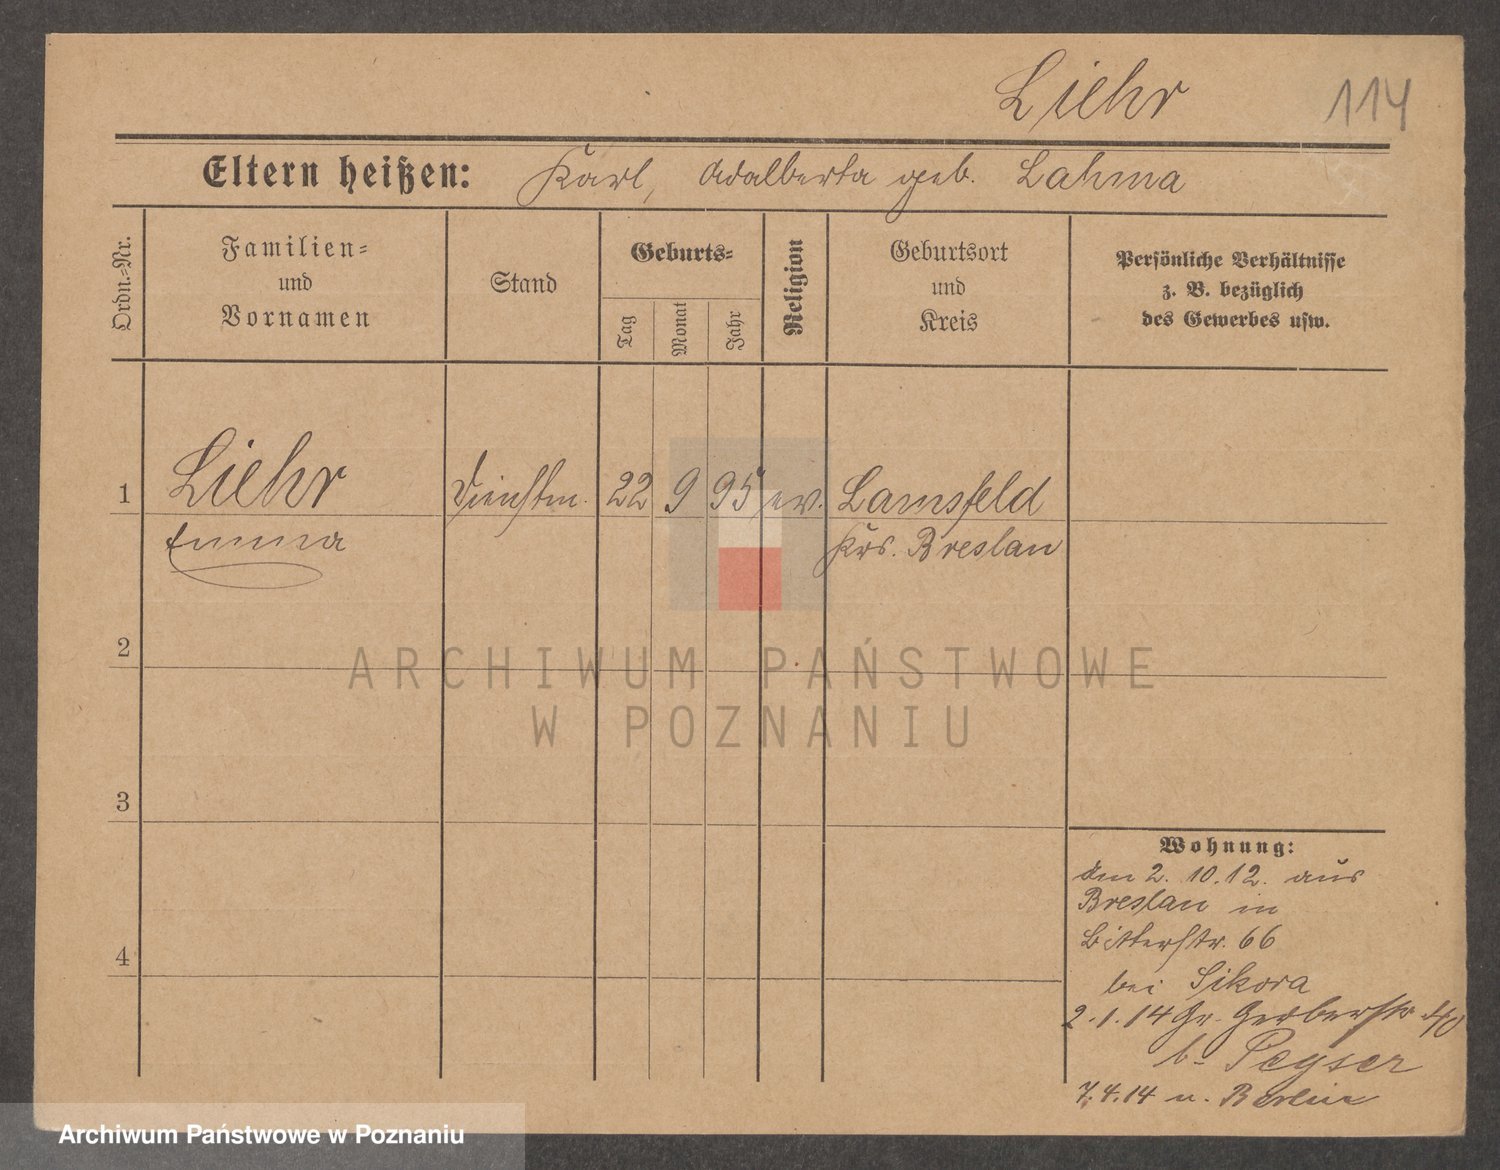 Liehr 114
Eltern heißen: Karl, Adalberta geb. Lahma
Ordn.=Nr.
Familien=
und
Vornamen
Stand
Geburts=
Tag
Monat
Jahr
Religion
Geburtsort
und
Kreis
Persönliche Verhältnisse
z. B. bezüglich
des Gewerbes usw.
1 Liehr Dienstm. 22 9 95 ev. Lamsfeld
Emma Krs. Breslau
2
3
4
ARCHIWUM PAŃSTWOWE
W POZNANIU
Wohnung:
den 2. 10. 12. aus
Breslau in
Bitterstr. 66
bei Sikora
2.1.14 Gr. Gerberstr 40
b. Peyser
7.4.14 n. Berlin
Archiwum Państwowe w Poznaniu